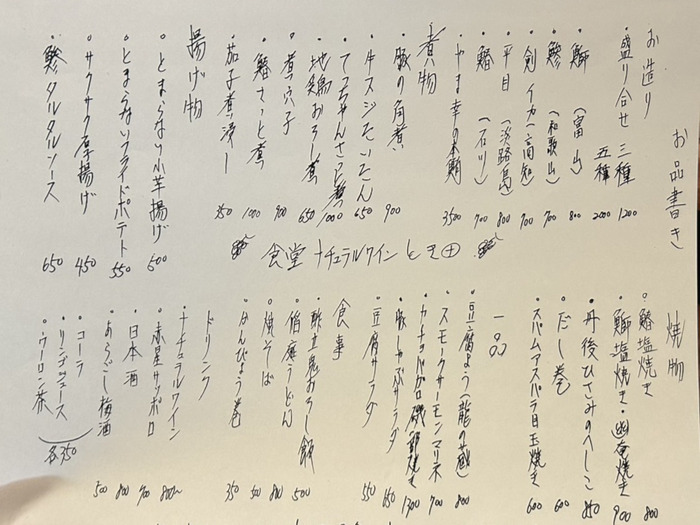 お品書き
お造り
盛り合せ 三種 1200
五種 2000
・鰤 (富山) 800
・鯵 (和歌山) 700
・剣イカ (高知) 700
・平目 (淡路島) 800
・鰆 (石川) 700
・やま幸の本鮪 3500
煮物
・豚の角煮 900
・牛スジたいたん 650
・てっちゃんさっと煮 1000
・地鶏おろし煮 650
・煮穴子 900
・鰆さっと煮 1000
・茄子煮浸し 350
揚げ物
・とまらない小芋揚げ 500
・とまらないフライドポテト 550
・サクサク厚揚げ 450
・鯵タルタルソース 650
食堂 ナチュラルワイン とき
焼物
・鰆塩焼き 800
・鰤塩焼き・幽庵焼き 900
・丹後ひさみのへしこ 850
・だし巻 600
・スパムアスパラ目玉焼き 600
一品
・豆腐よう(龍の蔵) 800
・スモークサーモンマリネ 700
磯部焼き 1300
・豚しゃぶサラダ 150
・豆腐サラダ 550
食事
・酢立鬼おろし飯
・稲庭うどん 500
・焼そば 800
・かんぴょう巻 350
ドリンク
・ナチュラルワイン 800〜
・赤星サッポロ 700
・日本酒 800
・あらごし梅酒 500
・コーラ
・リンゴジュース
・ウーロン茶
各350